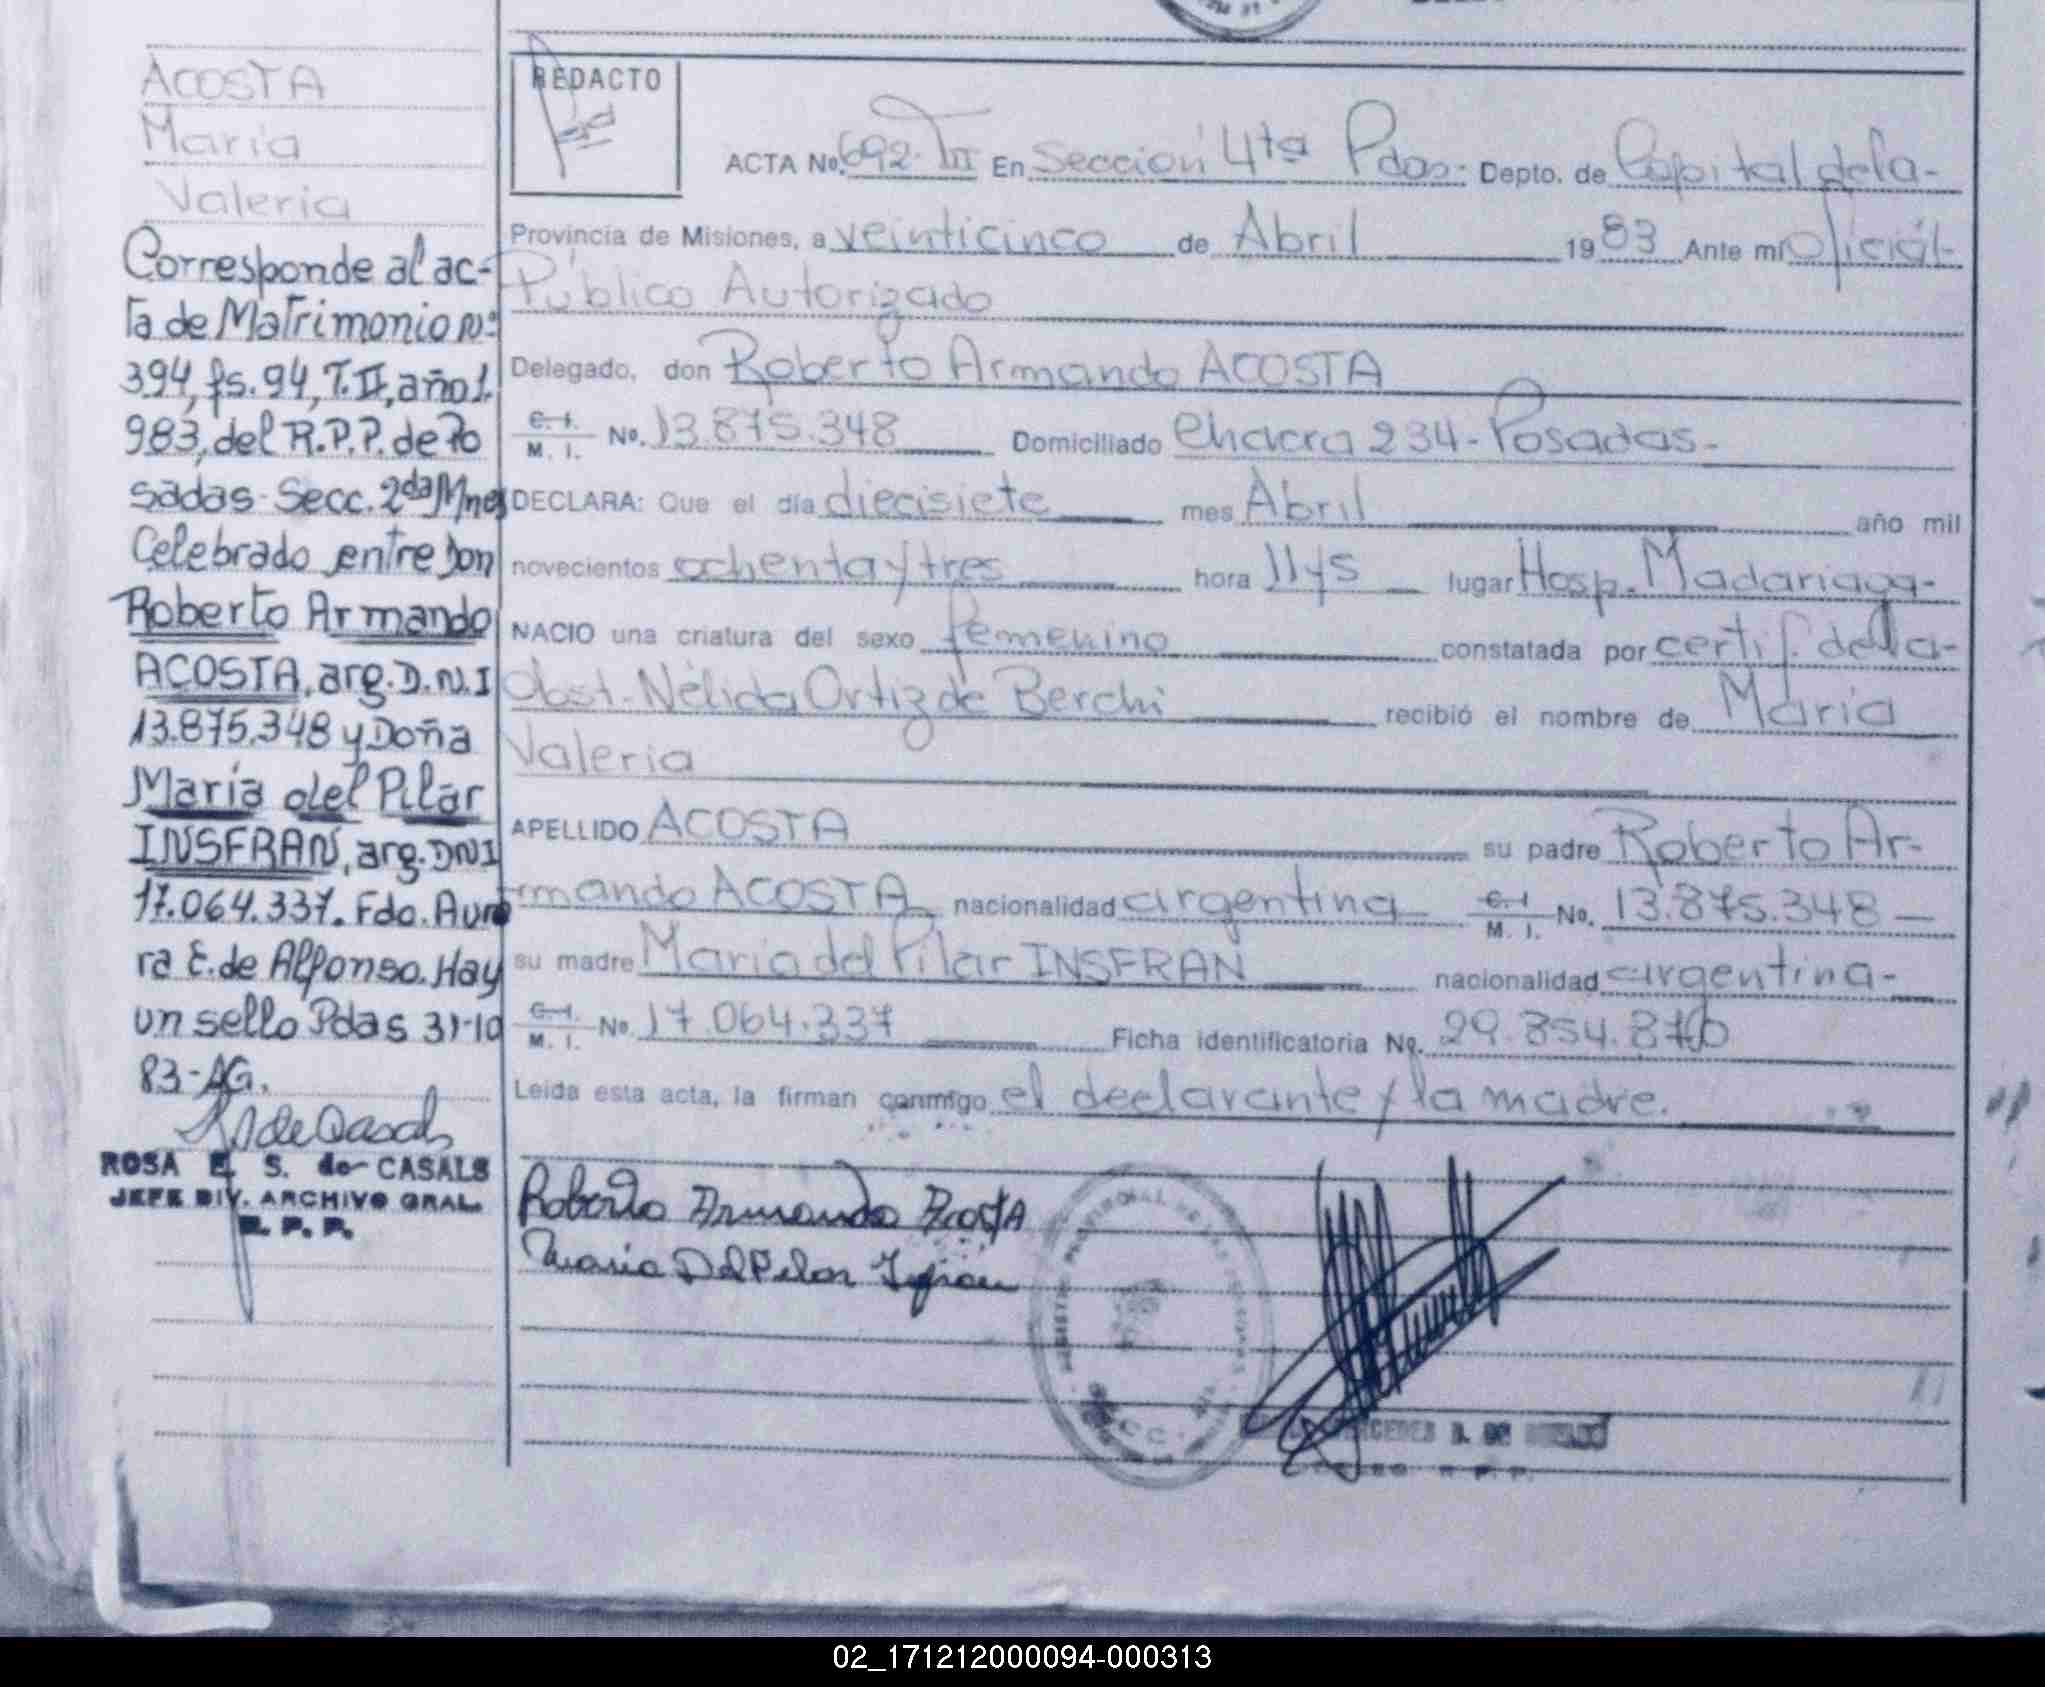 ACOSTA
María
Valeria
Corresponde al ac-
ta de Matrimonio Nº
394, fs. 94, T. II, año 1.
983, del R.P.P. de Po
sadas - Secc. 2da Mnes
Celebrado entre Don
Roberto Armando
ACOSTA, arg. D.N.I
13.875.348 y Doña
María del Pilar
INSFRAN, arg. DNI
17.064.337. Fdo. Auro
ra E. de Alfonso. Hay
un sello Pdas 31-10
83-AG.
ROSA E. S. de CASALS
JEFE DIV. ARCHIVO GRAL.
R. P. P.
REDACTO
ACTA No. 692. TII En Sección 4ta Pdas- Depto. de Capital de la-
Provincia de Misiones, a veinticinco de Abril 1983 Ante mí Oficial-
Público Autorizado
Delegado, don Roberto Armando ACOSTA
C. I. M. I. No. 13.875.348 Domiciliado Chacra 234- Posadas-
DECLARA: Que el día diecisiete mes Abril año mil
novecientos ochenta y tres hora 11 y 5 lugar Hosp. Madariaga-
NACIO una criatura del sexo femenino constatada por certif. de la-
Obst. Nélida Ortiz de Berchi recibió el nombre de María
Valeria
APELLIDO ACOSTA su padre Roberto Ar-
mando ACOSTA nacionalidad argentina C. I. M. I. No. 13.875.348 —
su madre María del Pilar INSFRAN nacionalidad argentina-
C. I. M. I. No. 17.064.337 Ficha identificatoria No. 29.854.8
Leída esta acta, la firman conmigo el declarante y la madre.
Roberto Armando Acosta
María Del Pilar Insfran
02_171212000094-000313